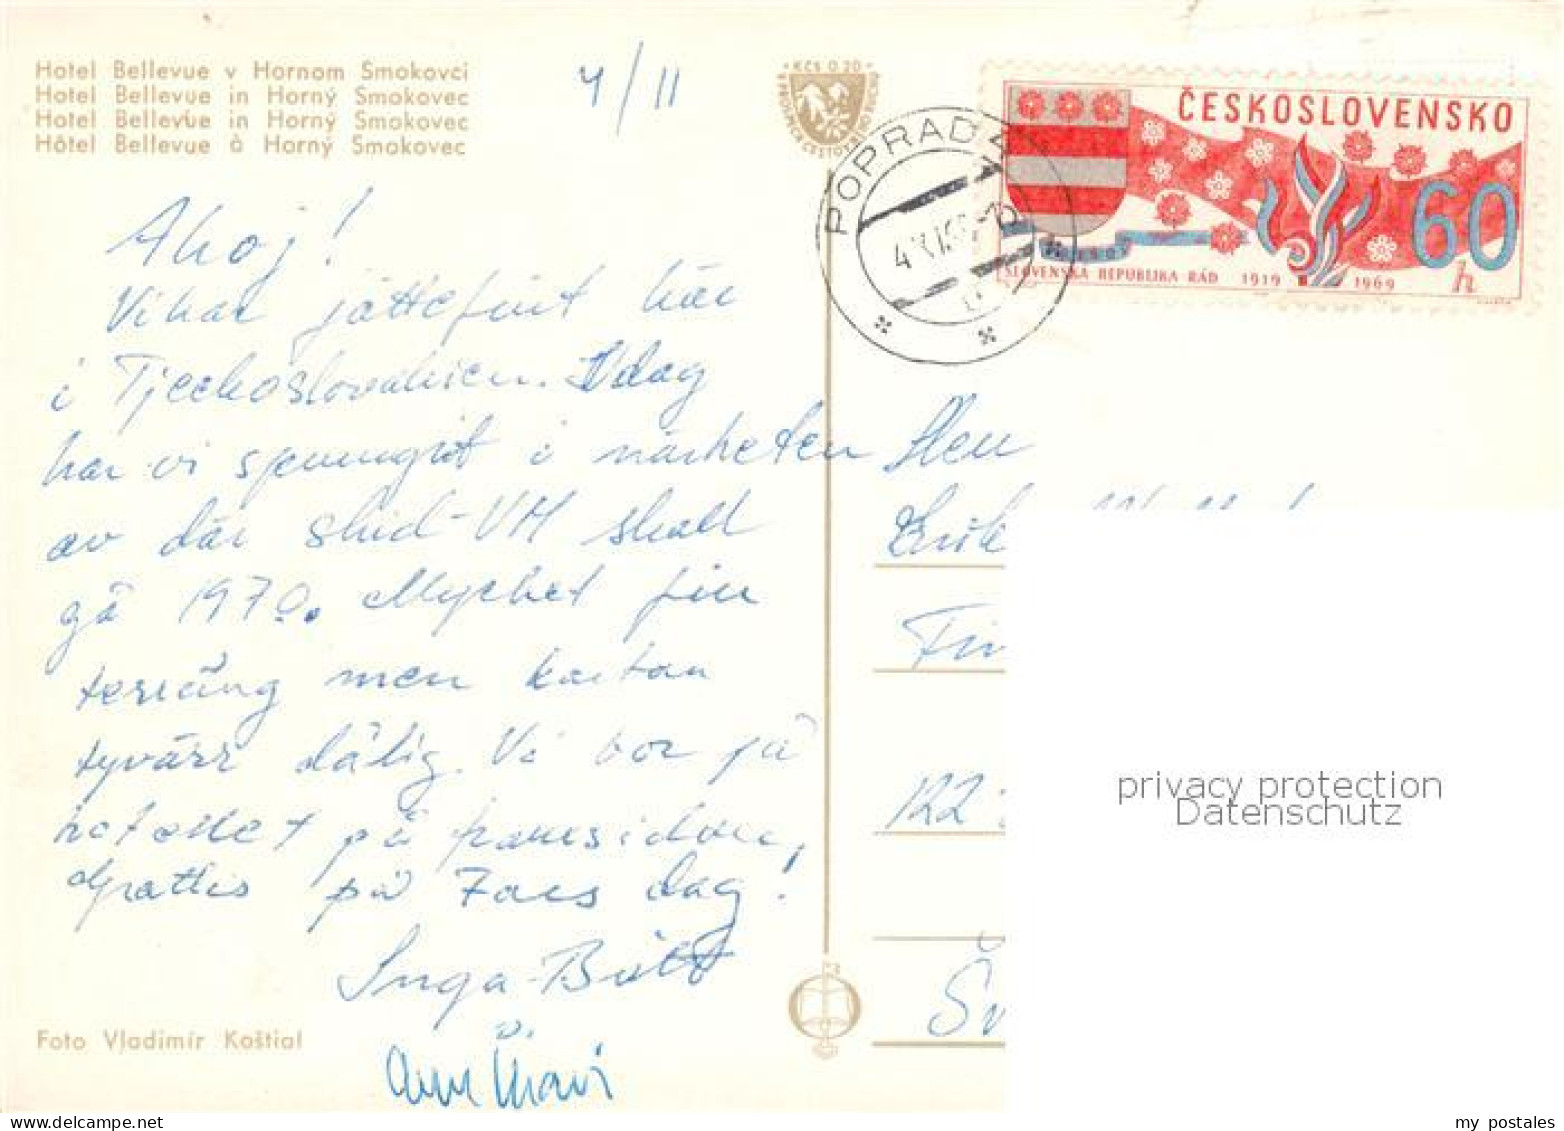 Hotel Bellevue v Hornom Smokovci
Hotel Bellevue in Horný Smokovec
Hotel Bellevue in Horný Smokovec
Hôtel Bellevue à Horný Smokovec
4/11
KČS 0,20
POPRAD
ČESKOSLOVENSKO
60 h
SLOVENSKA REPUBLIKA RÁD 1919 1969
Ahoj!
Vi har jättefint här
i Tjeckoslovakien. Idag
har vi sprungit i närheten
av där skid-VM skall
gå 1970. Mycket fin
terräng men kartan
tyvärr dålig. Vi bor på
hotellet på framsidan,
Grattis på Fars dag!
Inga-Britt
Herr
Erik
122
Foto Vladimír Koštial
privacy protection
Datenschutz
my postales